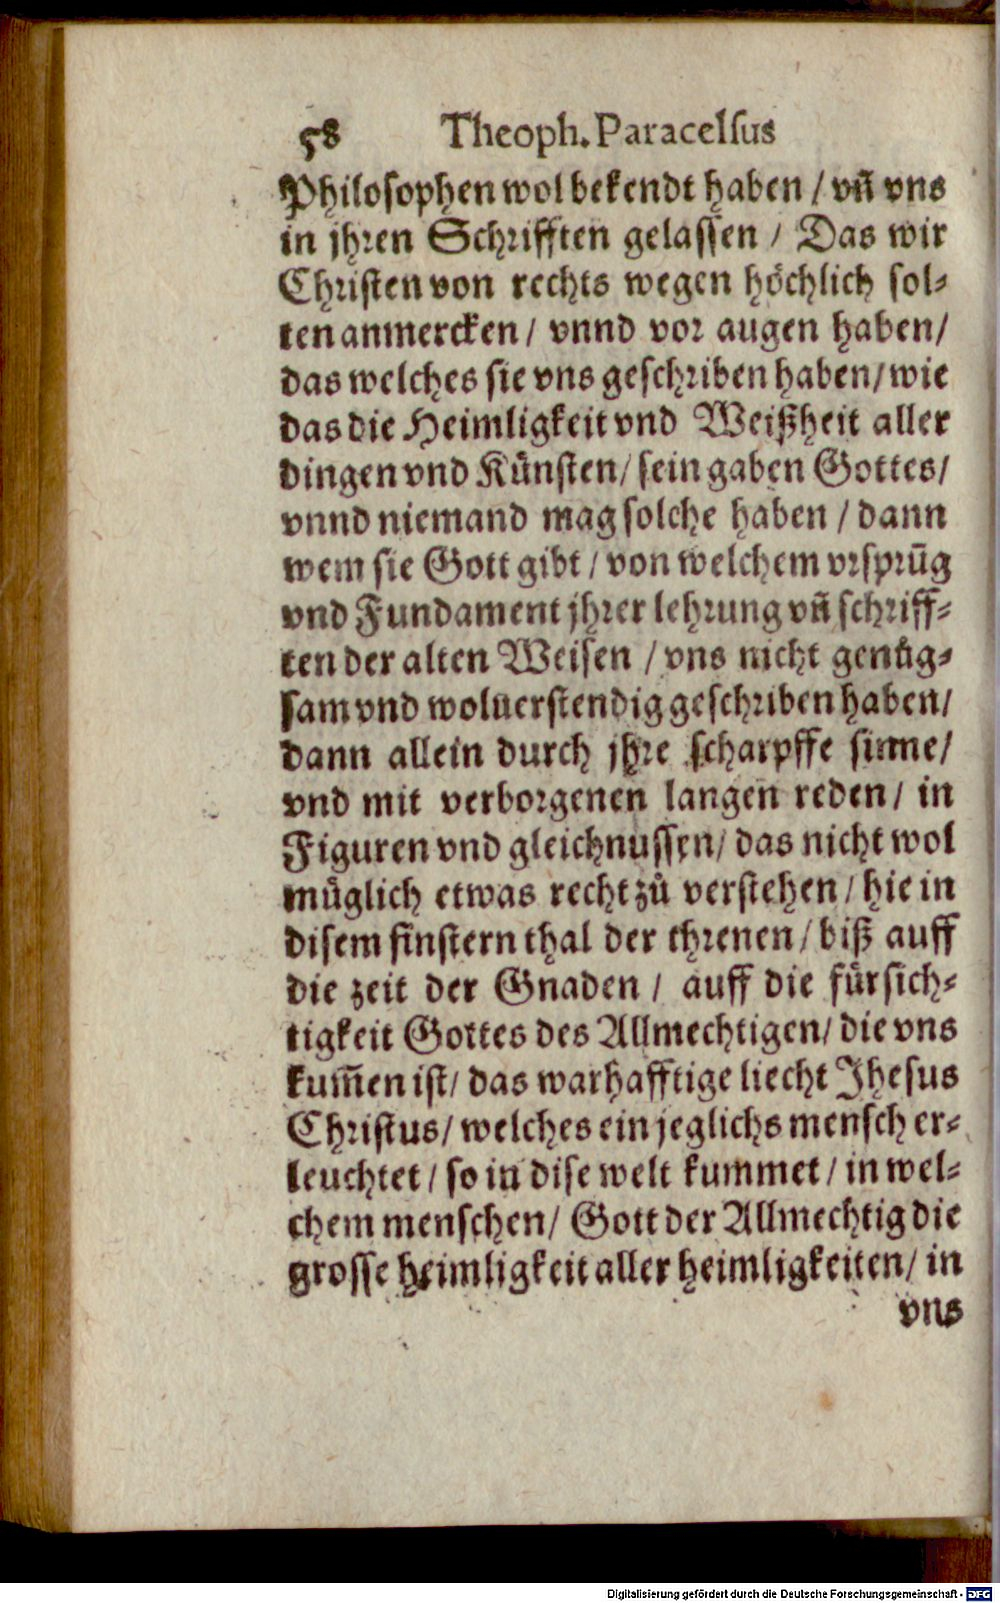 58 Theoph. Paracelsus
Philosophen wol bekendt haben / vñ vns
in jhren Schrifften gelassen / Das wir
Christen von rechts wegen höchlich sol-
ten anmercken / vnnd vor augen haben /
das welches sie vns geschriben haben / wie
das die Heimligkeit vnd Weißheit aller
dingen vnd Künsten / sein gaben Gottes /
vnnd niemand mag solche haben / dann
wem sie Gott gibt / von welchem vrsprūg
vnd Fundament jhrer lehrung vñ schriff-
ten der alten Weisen / vns nicht genůg-
sam vnd woluerstendig geschriben haben /
dann allein durch jhre scharpffe sinne /
vnd mit verborgenen langen reden / in
Figuren vnd gleichnussen / das nicht wol
müglich etwas recht zů verstehen / hie in
disem finstern thal der threnen / biß auff
die zeit der Gnaden / auff die fürsich-
tigkeit Gottes des Allmechtigen / die vns
kum̃en ist / das warhafftige liecht Jhesus
Christus / welches ein jeglichs mensch er-
leuchtet / so in dise welt kummet / in wel-
chem menschen / Gott der Allmechtig die
grosse heimligkeit aller heimligkeiten / in
vns
Digitalisierung gefördert durch die Deutsche Forschungsgemeinschaft - DFG